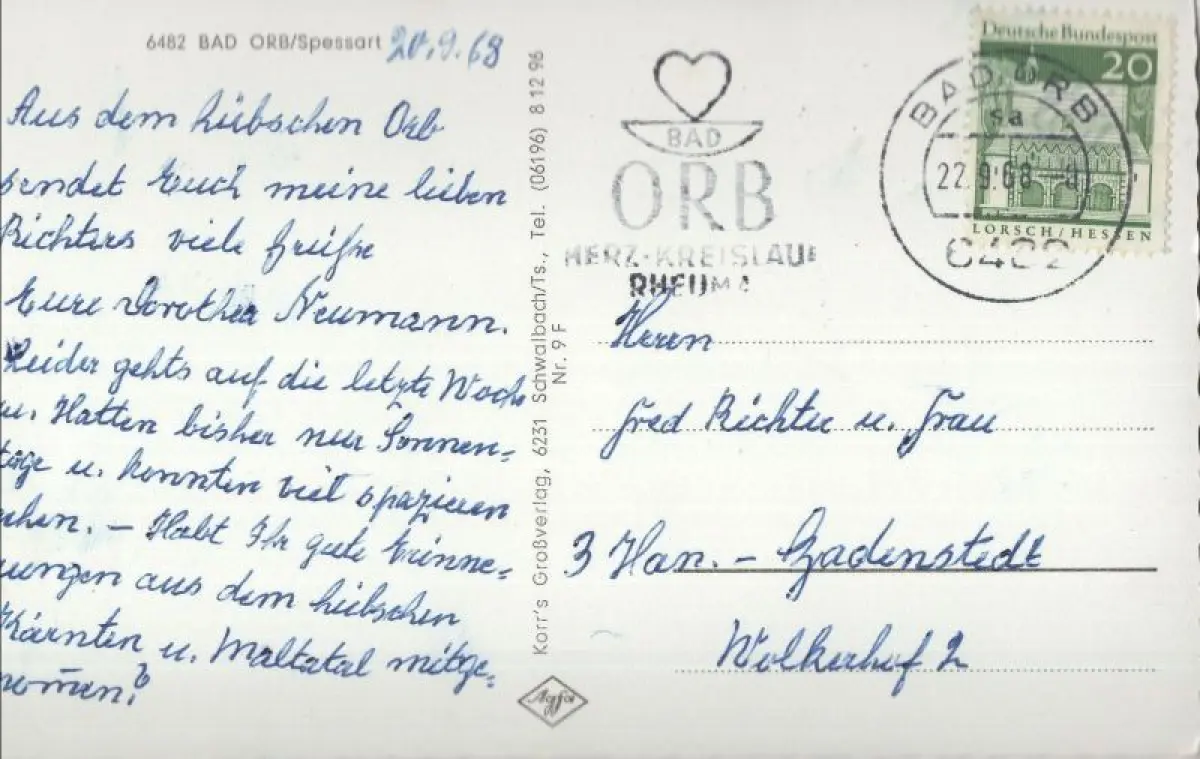 6482 BAD ORB/Spessart 20.9.68
Aus dem hübschen Orb
sendet Euch meine lieben
Richters viele Grüße
Eure Dorothea Neumann.
Leider gehts auf die letzte Woche
zu. Hatten bisher nur Sonnen-
tage u. konnten viel spazieren
gehen. – Habt Ihr gute Erinne-
rungen aus dem hübschen
Kärnten u. Maltatal mitge-
nom̄en?
Korr's Großverlag, 6231 Schwalbach/Ts., Tel. (06196) 8 12 96
Nr. 9 F
Agfa
BAD
ORB
HERZ-KREISLAUF
RHEUMA
BAD ORB
sa
22.9.68
6482
Deutsche Bundespost
20
LORSCH/HESSEN
Herrn
Fred Richter u. Frau
3 Han. – Badenstedt
Wolkerhof 2